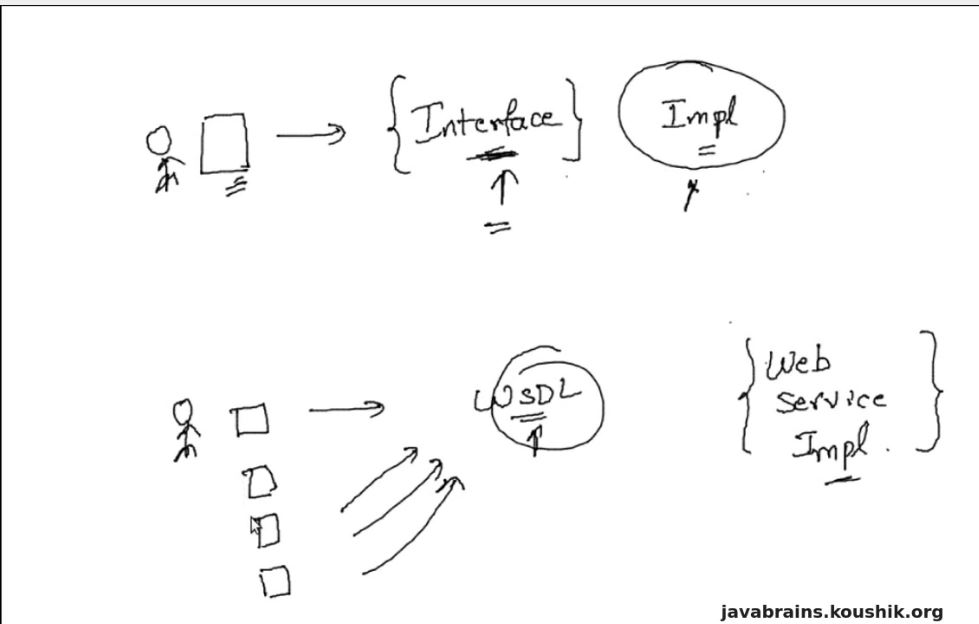 {Interface}
Impl
WSDL
Web
Service
Impl.
javabrains.koushik.org